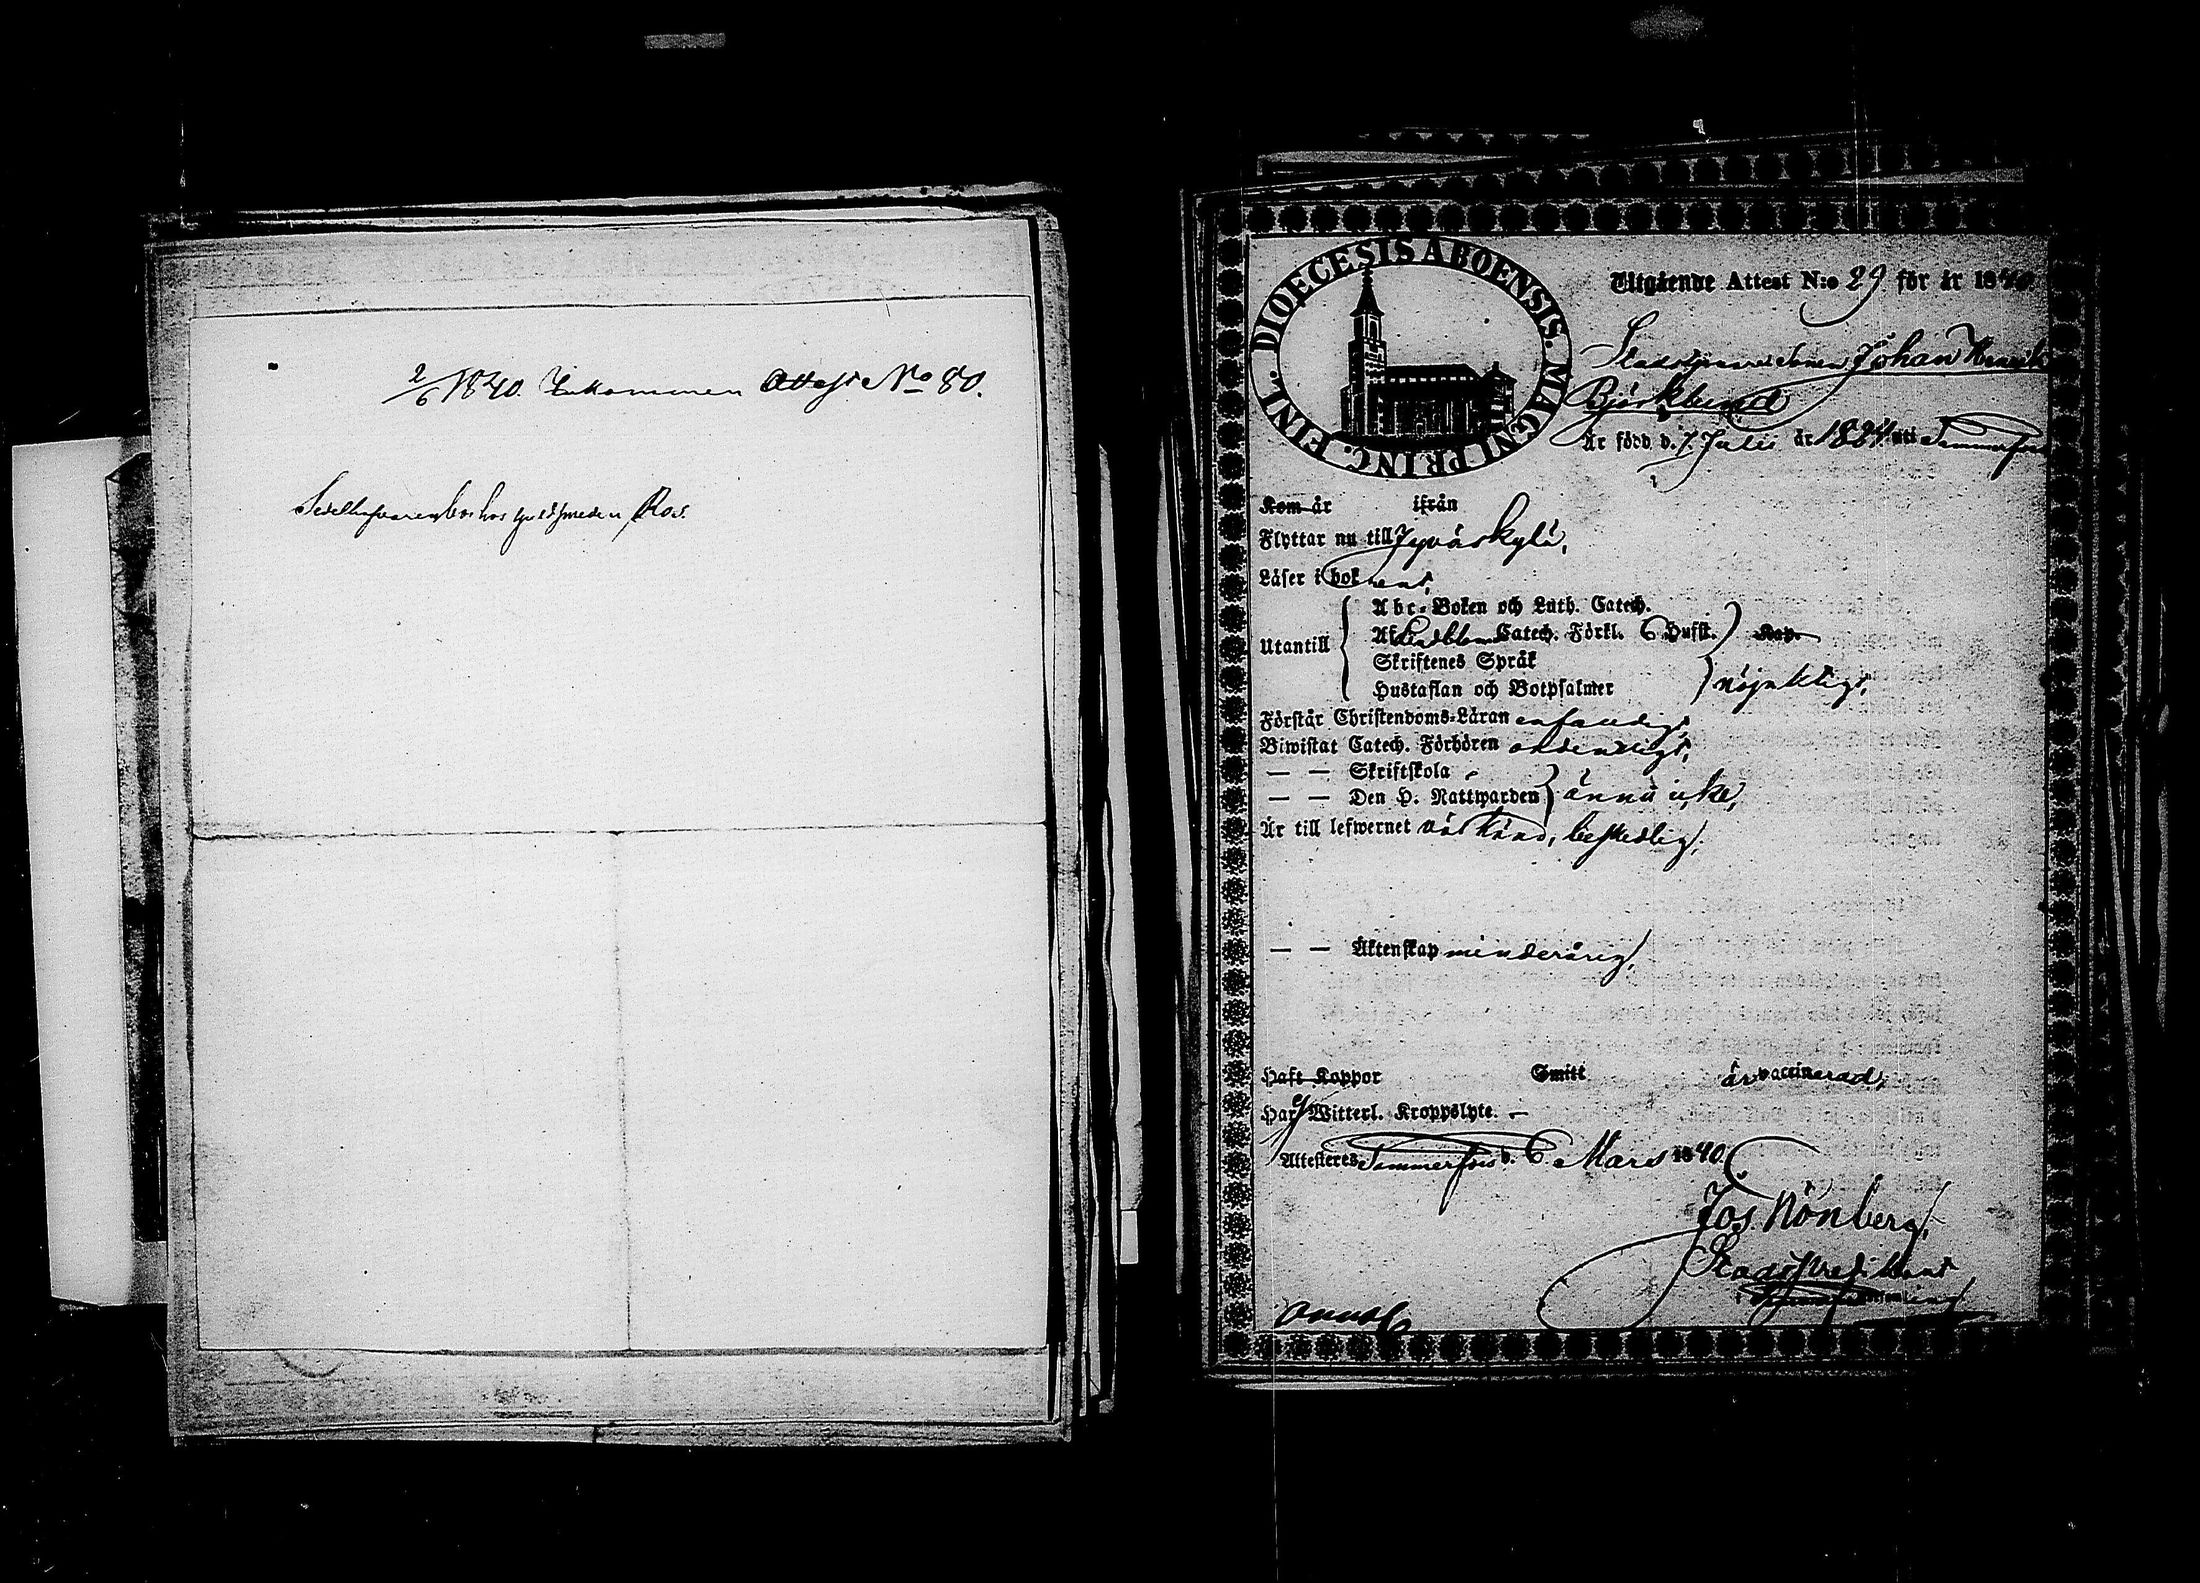 2/6 1840. Inkommen Attest No 80.
Sedelhafvaren bor hos guldsmeden Roos.
DIOECESIS ABOENSIS. MAGNI PRINC. FINL.
Utgående Attest N:o 29 för år 1840.
Johan Henrik
Björklund
Är född d. 7 Julii år 1824 uti Tammerfors
Kom år ifrån
Flyttar nu till Jyväskylä,
Läser i bok
Utantill
Abc-Boken och Luth. Catech.
Af Lindbloms Catech. Förkl. 6 Hufst. Kap.
Skriftenes Språk
Hustaflan och Botpsalmer nöjaktigt,
Förstår Christendoms-Läran enfaldigt,
Biwistat Catech. Förhören ordentligt,
— — Skriftskola
— — Den H. Nattwarden ännu icke,
Är till lefwernet välkänd, beskedlig,
— — Äktenskap minderårig,
Haft Koppor Smitt är vaccinerad,
Har ej Witterl. Kroppslyte. —
Attesteres Tammerfors d. 6 Mars 1840.
Jos. Nönberg,
Stadspredikant